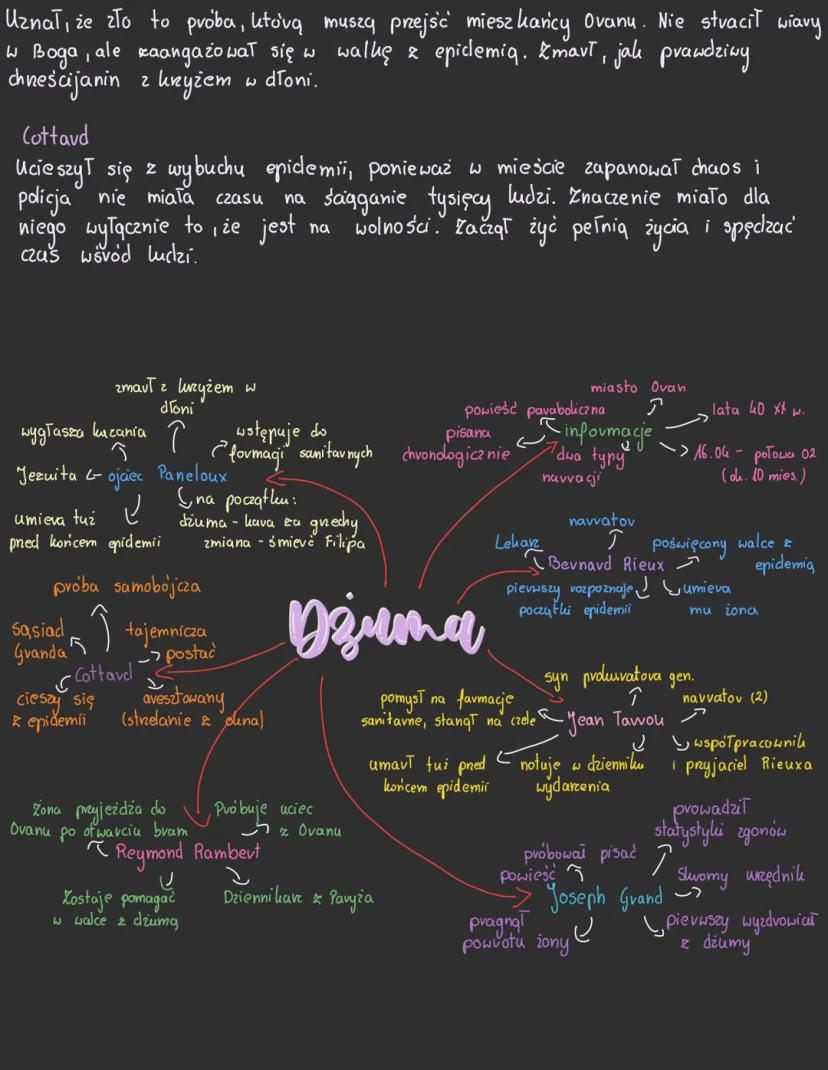 Uznał, że zło to próba, którą muszą przejść mieszkańcy Oranu. Nie stracił wiary
w Boga, ale zaangażował się w walkę z epidemią. Zmarł, jak prawdziwy
chrześcijanin z krzyżem w dłoni.
Cottard
Ucieszył się z wybuchu epidemii, ponieważ w mieście zapanował chaos i
policja nie miała czasu na ściąganie tysięcy ludzi. Znaczenie miało dla
niego wyłącznie to, że jest na wolności. Zaczął żyć pełnią życia i spędzać
czas wśród ludzi.
zmarł z krzyżem w
dłoni
wygłasza kazania
wstępuje do
formacji sanitarnych
Jezuita
ojciec Paneloux
na początku:
dżuma - kara za grzechy
zmiana - śmierć Filipa
umiera tuż
pred końcem epidemii
miasto Oran
powieść paraboliczna
lata 40 XX w.
pisana
chronologicznie
informacje
dwa typy
narracji
16.04 - połowa 02
(ok. 10 mies.)
narrator
Lekarz
Bernard Rieux
poświęcony walce z
epidemią
pierwszy rozpoznaje
początki epidemii
umiera
mu żona
Dżuma
próba samobójcza
sąsiad
Granda
tajemnicza
postać
Cottard
cieszy się
z epidemii
aresztowany
(strzelanie z okna)
syn prokuratora gen.
pomysł na farmacje
sanitarne, stanął na czele
Jean Tarrou
narrator (2)
współpracownik
i przyjaciel Rieuxa
umarł tuż pred
końcem epidemii
notuje w dzienniku
wydarzenia
Żona przyjeżdża do
Oranu po otwarciu bram
Próbuje uciec
z Oranu
Reymond Rambert
Zostaje pomagać
w walce z dżumą
Dziennikarz z Paryża
prowadził
statystyki zgonów
próbował pisać
powieść
Skromy urzędnik
Joseph Grand
pragnął
powrotu żony
pierwszy wyzdrowiał
z dżumy